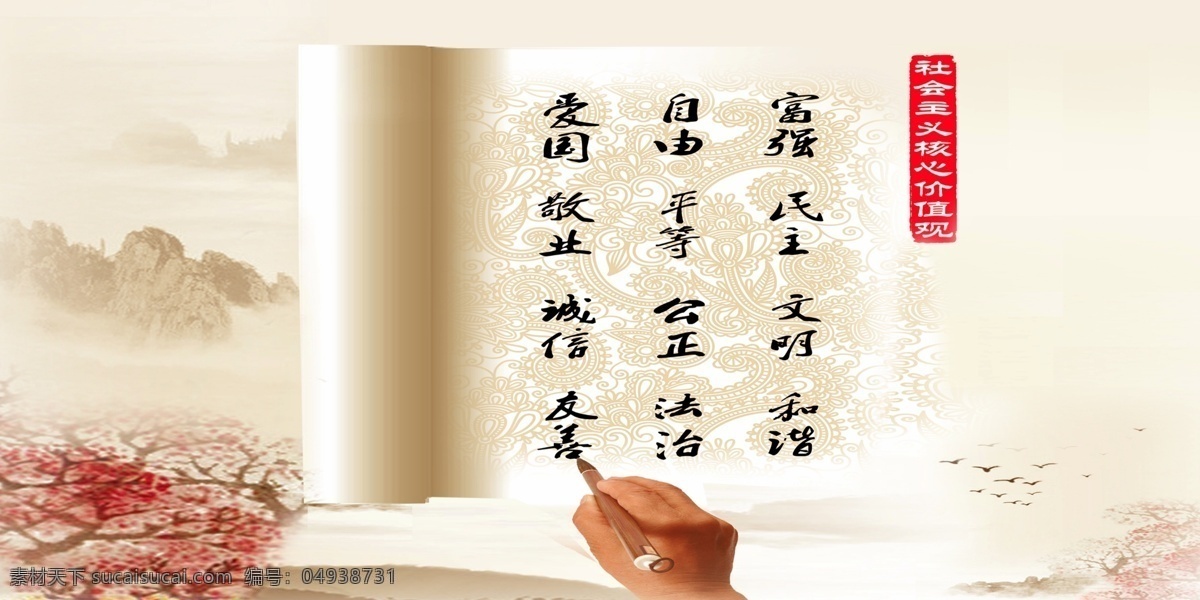 社会主义核心价值观
富强
民主
文明
和谐
自由
平等
公正
法治
爱国
敬业
诚信
友善
素材天下 sucaisucai.com 编号：04938731